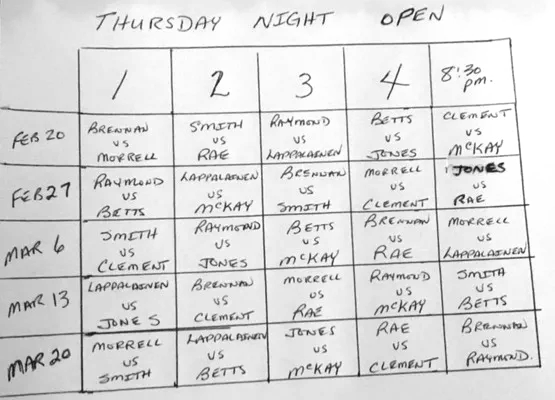 THURSDAY NIGHT OPEN
1 2 3 4 8:30 pm.
FEB 20 BRENNAN vs MORRELL SMITH vs RAE RAYMOND vs LAPPALAINEN BETTS vs JONES CLEMENT vs McKAY
FEB 27 RAYMOND vs BETTS LAPPALAINEN vs McKAY BRENNAN vs SMITH MORRELL vs CLEMENT JONES vs RAE
MAR 6 SMITH vs CLEMENT RAYMOND vs JONES BETTS vs McKAY BRENNAN vs RAE MORRELL vs LAPPALAINEN
MAR 13 LAPPALAINEN vs JONES BRENNAN vs CLEMENT MORRELL vs RAE RAYMOND vs McKAY SMITH vs BETTS
MAR 20 MORRELL vs SMITH LAPPALAINEN vs BETTS JONES vs McKAY RAE vs CLEMENT BRENNAN vs RAYMOND.